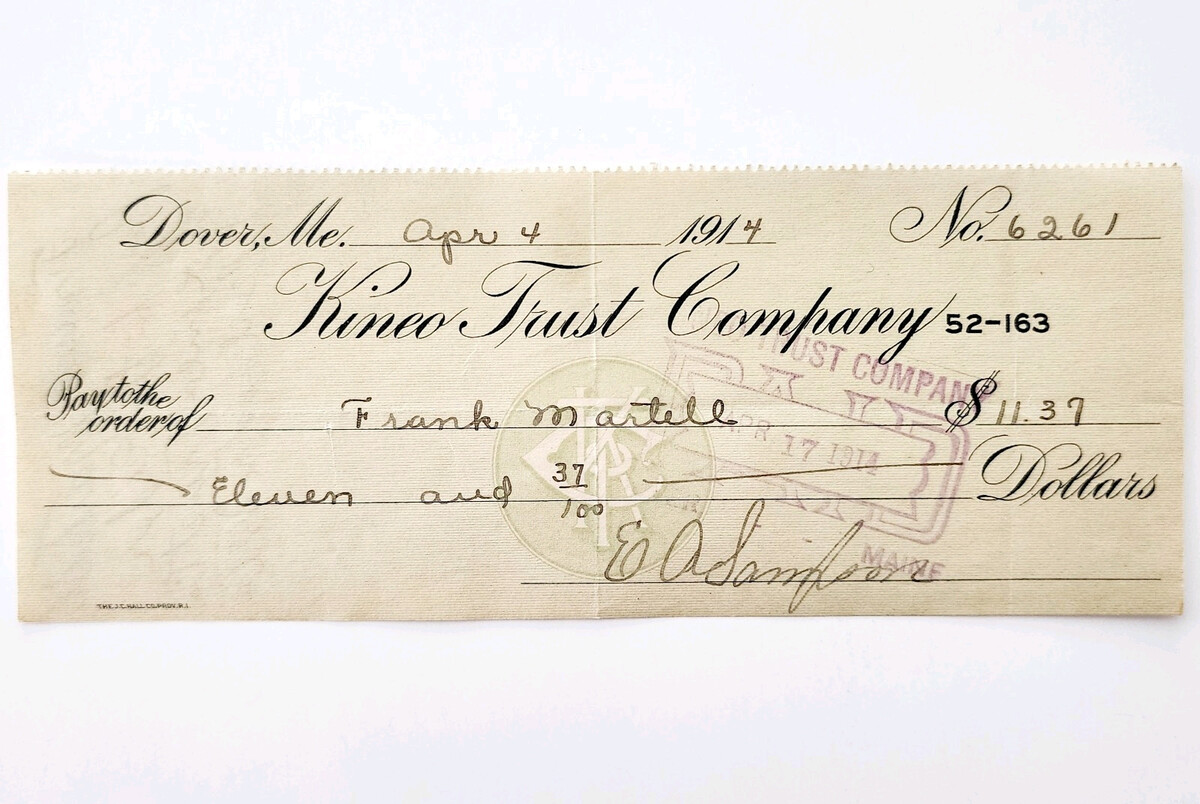 Dover, Me. Apr 4 1914 No. 6261
Kineo Trust Company 52-163
TRUST COMPANY
Pay to the order of Frank Martell $ 11.37
PAID
APR 17 1914
Eleven and 37/100 Dollars
E A Sampson
MAINE
THE J.C. HALL CO. PROV. R.I.